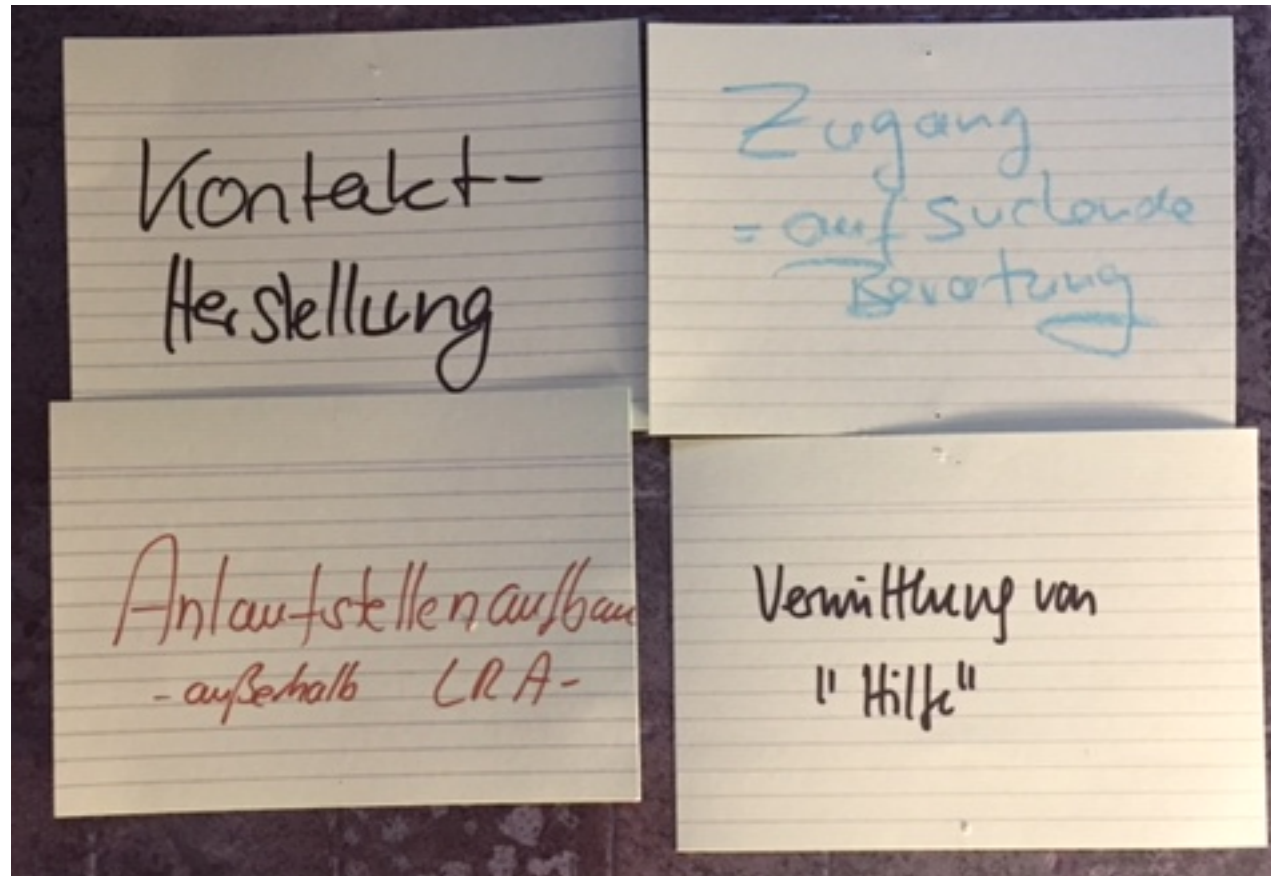 Kontakt-
Herstellung
Zugang
= aufsuchende
Beratung
Anlaufstellenaufbau
- außerhalb LRA -
Vermittlung von
"Hilfe"